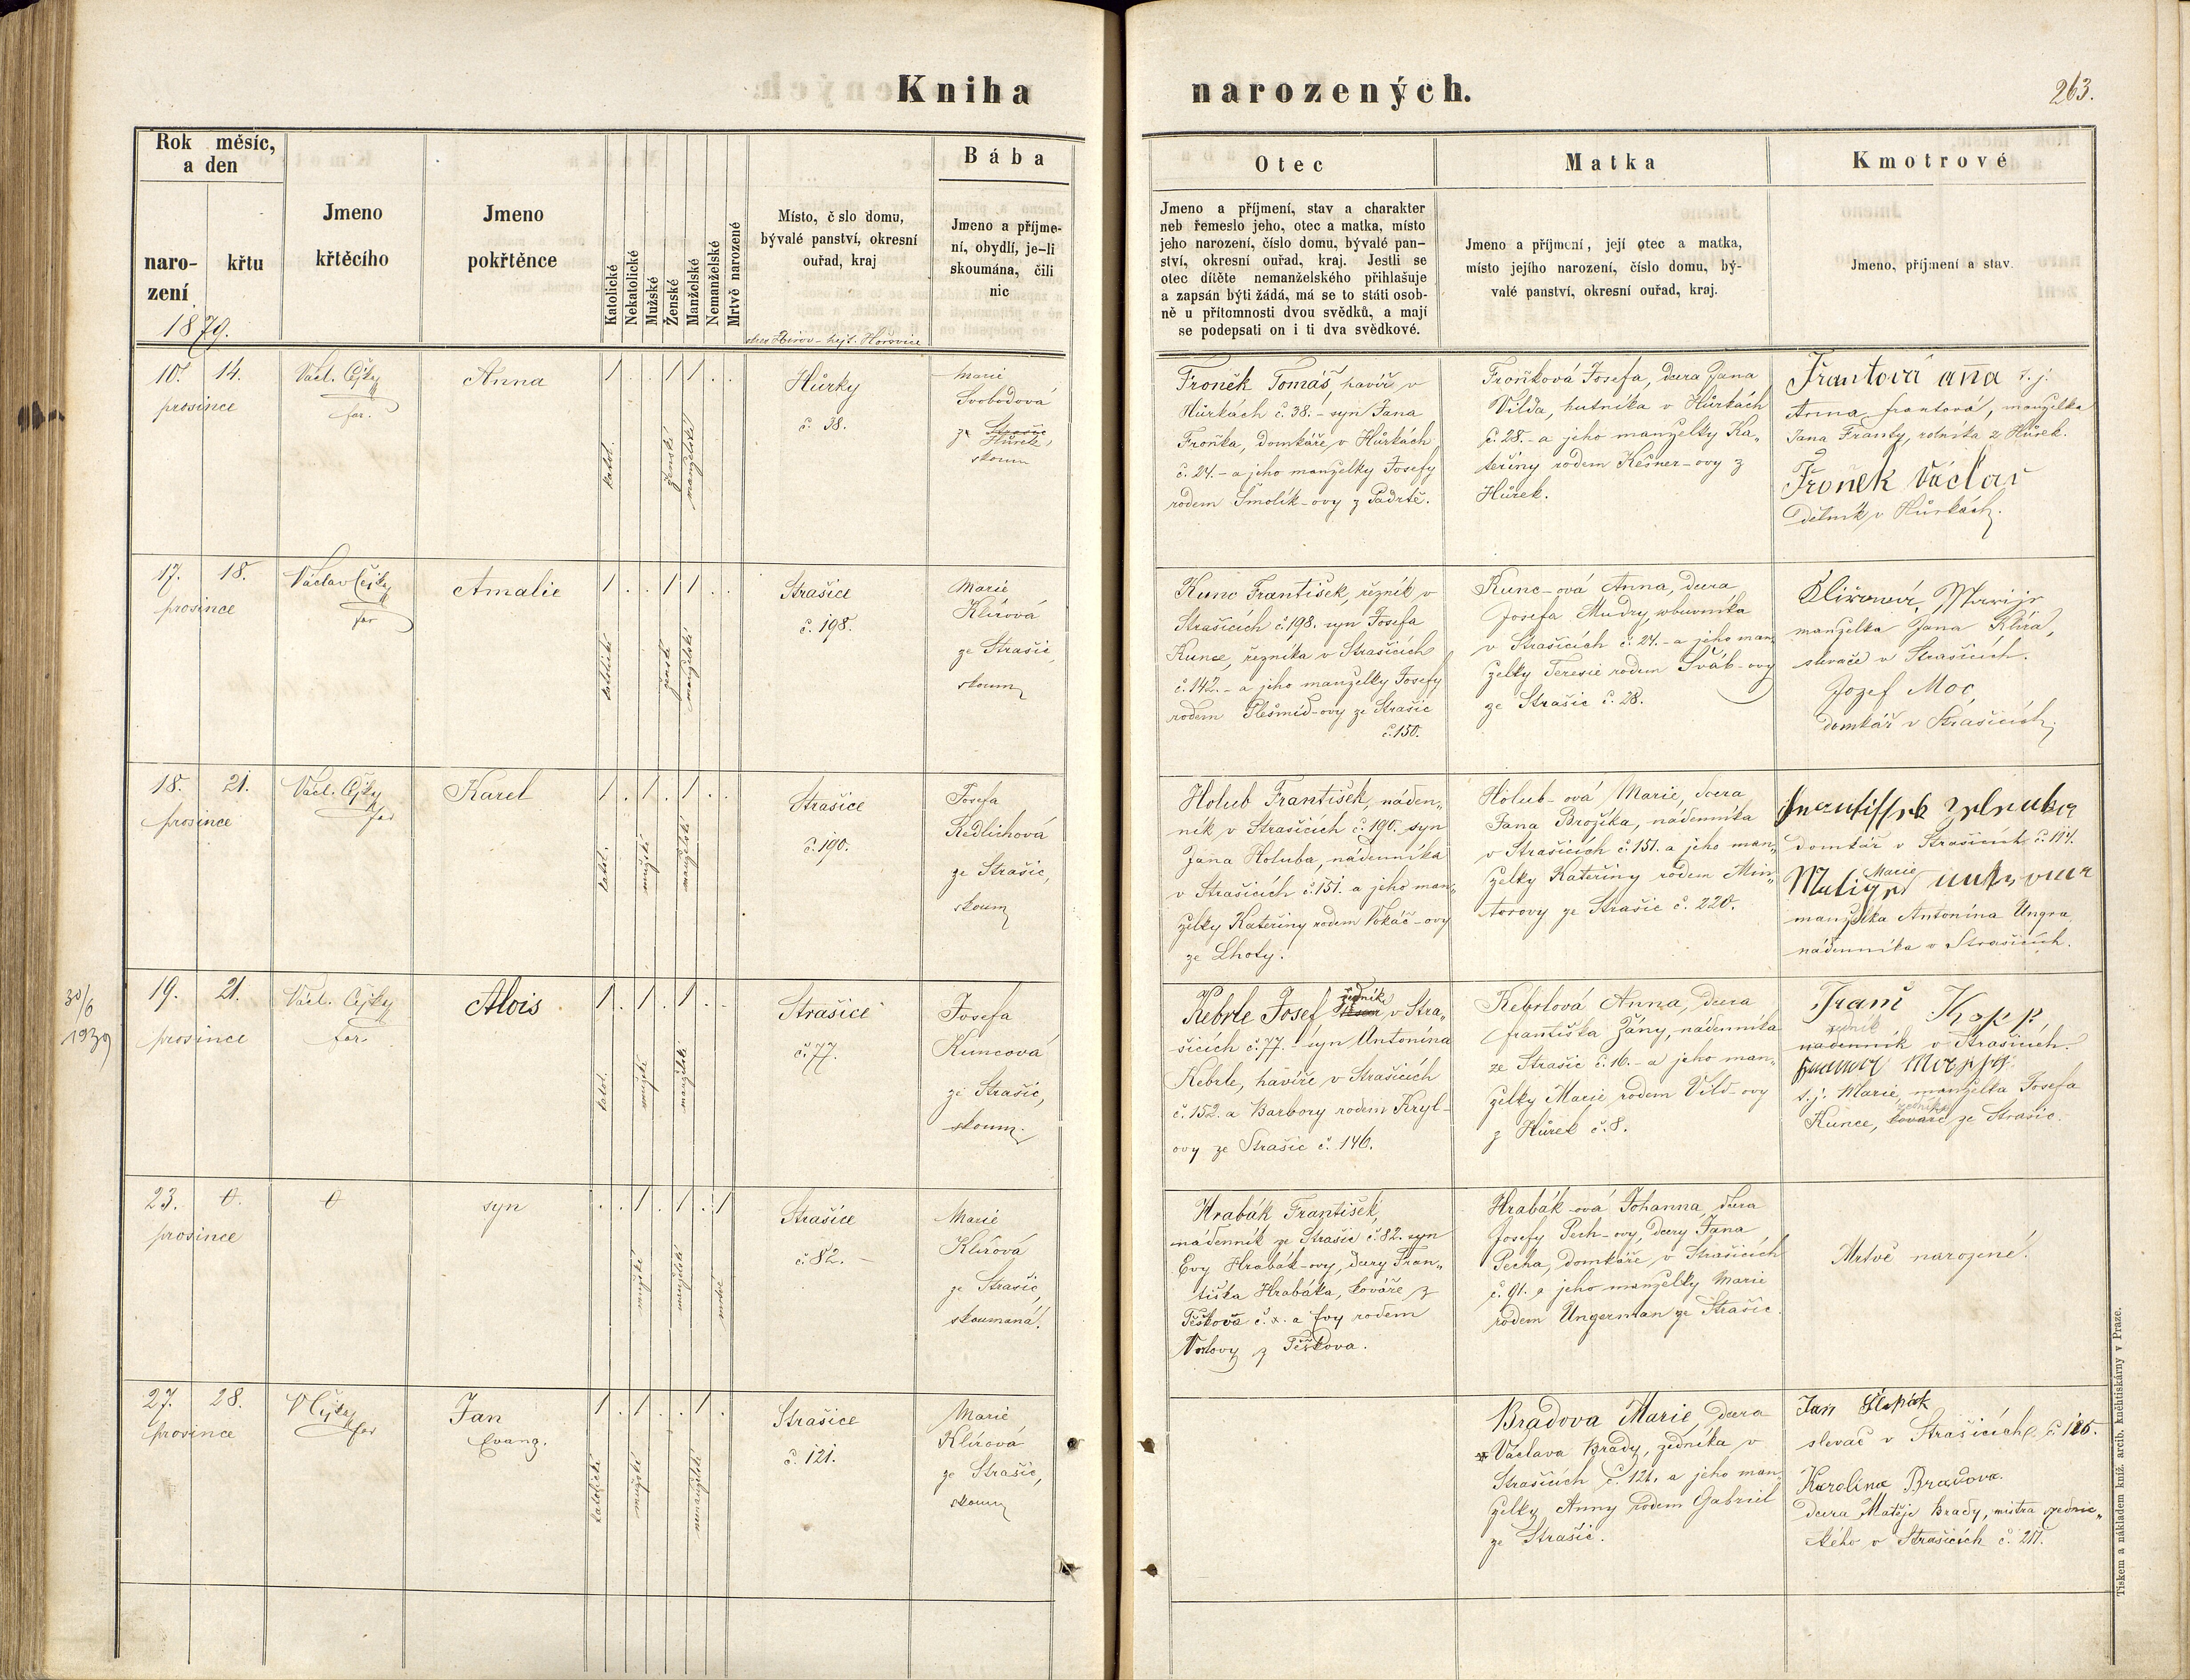 Kniha narozených.
263.
Rok měsíc,
a den
naro-
zení
křtu
1879.
Jmeno
křtěcího
Jmeno
pokřtěnce
Katolické
Nekatolické
Mužské
Ženské
Manželské
Nemanželské
Mrtvě narozené
Místo, č slo domu,
bývalé panství, okresní
ouřad, kraj
okres Zbirov - hejt. Hořovice
Bába
Jmeno a příjme-
ní, obydlí, je-li
skoumána, čili
nic
Otec
Jmeno a příjmení, stav a charakter
neb řemeslo jeho, otec a matka, místo
jeho narození, číslo domu, bývalé pan-
ství, okresní ouřad, kraj. Jestli se
otec dítěte nemanželského přihlašuje
a zapsán býti žádá, má se to státi osob-
ně u přítomnosti dvou svědků, a mají
se podepsati on i ti dva svědkové.
Matka
Jmeno a příjmení, její otec a matka,
místo jejího narození, číslo domu, bý-
valé panství, okresní ouřad, kraj.
Kmotrové
Jmeno, příjmení a stav.
10. 14.
prosince
Václ. Čejky
far.
Anna
1 . . 1 1 . .
katol.
ženské
manželské
Hůrky
č. 38.
Marie
Svobodová
z Strašic
Hůrek,
skoum
Froněk Tomáš havíř v
Hůrkách č. 38. - syn Jana
Froňka, domkáře v Hůrkách
č. 24. - a jeho manželky Josefy
rodem Smolík-ovy z Padrtě.
Froňková Josefa, dcera Jana
Vilda, hutníka v Hůrkách
č. 28. - a jeho manželky Ka„
teřiny rodem Kešner-ovy z
Hůrek.
Frantová ana t. j.
Anna Frantová, manželka
Jana Franty, rolníka z Hůrek.
Froněk Václav
dělník v Hůrkách.
17. 18.
prosince
Václav Čejky
far
Amalie
1 . . 1 1 . .
katolické
ženské
manželské
Strašice
č. 198.
Marie
Klírová
ze Strašic,
skoum
Kunc František, řezník v
Strašicích č. 198. syn Josefa
Kunce, řezníka v Strašicích
č. 142. - a jeho manželky Josefy
rodem Plešmíd-ovy ze Strašic
č. 150.
Kunc-ová Anna, dcera
Josefa Mudry, obuvníka
v Strašicích č. 24. - a jeho man„
želky Teresie rodem Šváb-ovy
ze Strašic č. 28.
Klírová Marije
manželka Jana Klíra,
slevače v Strašicích.
Jozef Moc
domkář v Strašicích.
18. 21.
prosince
Václ. Čejky
far
Karel
1 . 1 . 1 . .
katol.
mužské
manželské
Strašice
č. 190.
Josefa
Redlichová
ze Strašic,
skoum
Holub František, náden„
ník v Strašicích č. 190. syn
Jana Holuba, nádenníka
v Strašicích č. 151. a jeho man„
želky Kateřiny rodem Vokáč-ovy
ze Lhoty.
Holub-ová Marie, dcera
Jana Brožíka, nádenníka
v Strašicích č. 151. a jeho man„
želky Kateřiny rodem Min„
torovy ze Strašic č. 220.
domkář v Strašicích č. 194.
Marie
manželka Antonína Ungra
nádenníka v Strašicích.
30/6
1939
19. 21.
prosince
Václ. Čejky
far.
Alois
1 . 1 . 1 . .
katol.
mužské
manželské
Strašice
č. 77.
Josefa
Kuncová
ze Strašic,
skoum.
Kebrle Josef zedník v Stra„
šicích č. 77. - syn Antonína
Kebrle, havíře v Strašicích
č. 152. a Barbory rodem Kryl-
ovy ze Strašic č. 146.
Kebrlová Anna, dcera
Františka Žány, nádenníka
ze Strašic č. 16. - a jeho man„
želky Marie rodem Vild-ovy
z Hůrek č. 8.
Franc Kopp
zedník
nádenník v Strašicích.
t. j. Marie, manželka Josefa
zedníka
Kunce, kováře ze Strašic.
23. 0.
prosince
0
syn
. . 1 . 1 . 1
mužské
manželské
mrtvé
Strašice
č. 82. -
Marie
Klírová
ze Strašic,
skoumaná.
Hrabák František,
nádenník ze Strašic č. 82. syn
Evy Hrabák-ovy, dcery Fran„
tiška Hrabáka, kováře z
Těškova č. x. a Evy rodem
z Těškova.
Hrabák-ová Johanna, dcera
Josefy Pech-ovy, dcery Jana
Pecha, domkáře v Strašicích
č. 91. a jeho manželky Marie
rodem Ungerman ze Strašic.
Mrtvě narozené.
27. 28.
prosince
V Čejky
far
Jan
Evang.
1 . 1 . . 1 .
katolické
mužské
nemanželské
Strašice
č. 121.
Marie
Klírová
ze Strašic,
skoum
Bradova Marie, dcera
Václava Brady, zedníka v
Strašicích č. 121. a jeho man„
želky Anny rodem Gabriel
ze Strašic.
Jan
slevač v Strašicích č. 126.
Karolina Bradova.
dcera Matěje Brady, mistra zednic„
kého v Strašicích č. 217.
Tiskem a nákladem kníž. arcib. knihtiskárny v Praze.